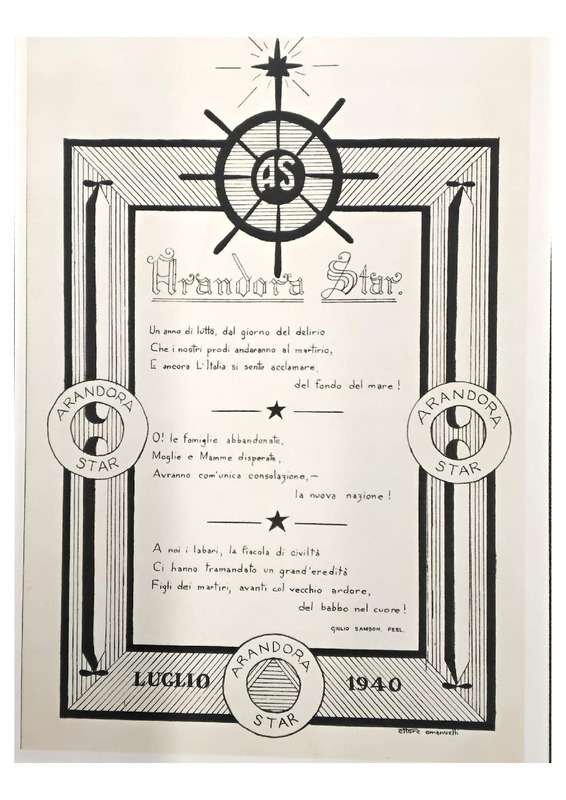 AS
Arandora Star.
Un anno di lutto, dal giorno del delirio
Che i nostri prodi andaranno al martirio,
E ancora L'Italia si sente acclamare,
del fondo del mare!
ARANDORA STAR
ARANDORA STAR
O! le famiglie abbandonate,
Moglie e Mamme disperate,
Avranno com'unica consolazione,—
la nuova nazione!
A noi i labari, la fiacola di civiltà
Ci hanno tramandato un grand'eredità
Figli dei martiri, avanti col vecchio ardore,
del babbo nel cuore!
GIULIO SAMBON. PEEL.
LUGLIO
ARANDORA STAR
1940
ettore emanuelli